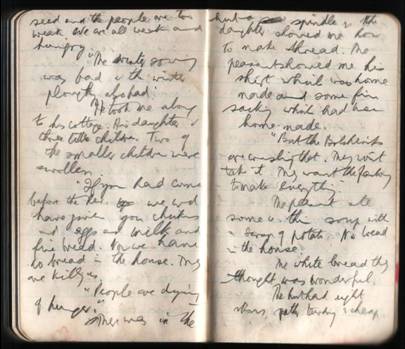 seed and the people are too
weak. We are all weak and
hungry.
"The winter sowing
was bad & the winter
plough also bad."
He took me along
to his cottage. His daughter &
three little children. Two of
the smaller children were
swollen.
"If you had come
before the Rev. we wd
have given you chicken
and eggs and milk and
fine bread. Now we have
no bread in the house. They
are killing us.
"People are dying
of hunger."
There was in the
hut a spindle & the
daughter showed me how
to make thread. The
peasant showed me his
shirt which was home
made and some fine
sacking which had been
home-made.
"But the Bolsheviks
are crushing that. They won't
take it. They want the factory
to make everything."
The peasant ate
some thin soup with
a scrap of potato. No bread
in the house.
The white bread they
thought was wonderful.
The hut had eight